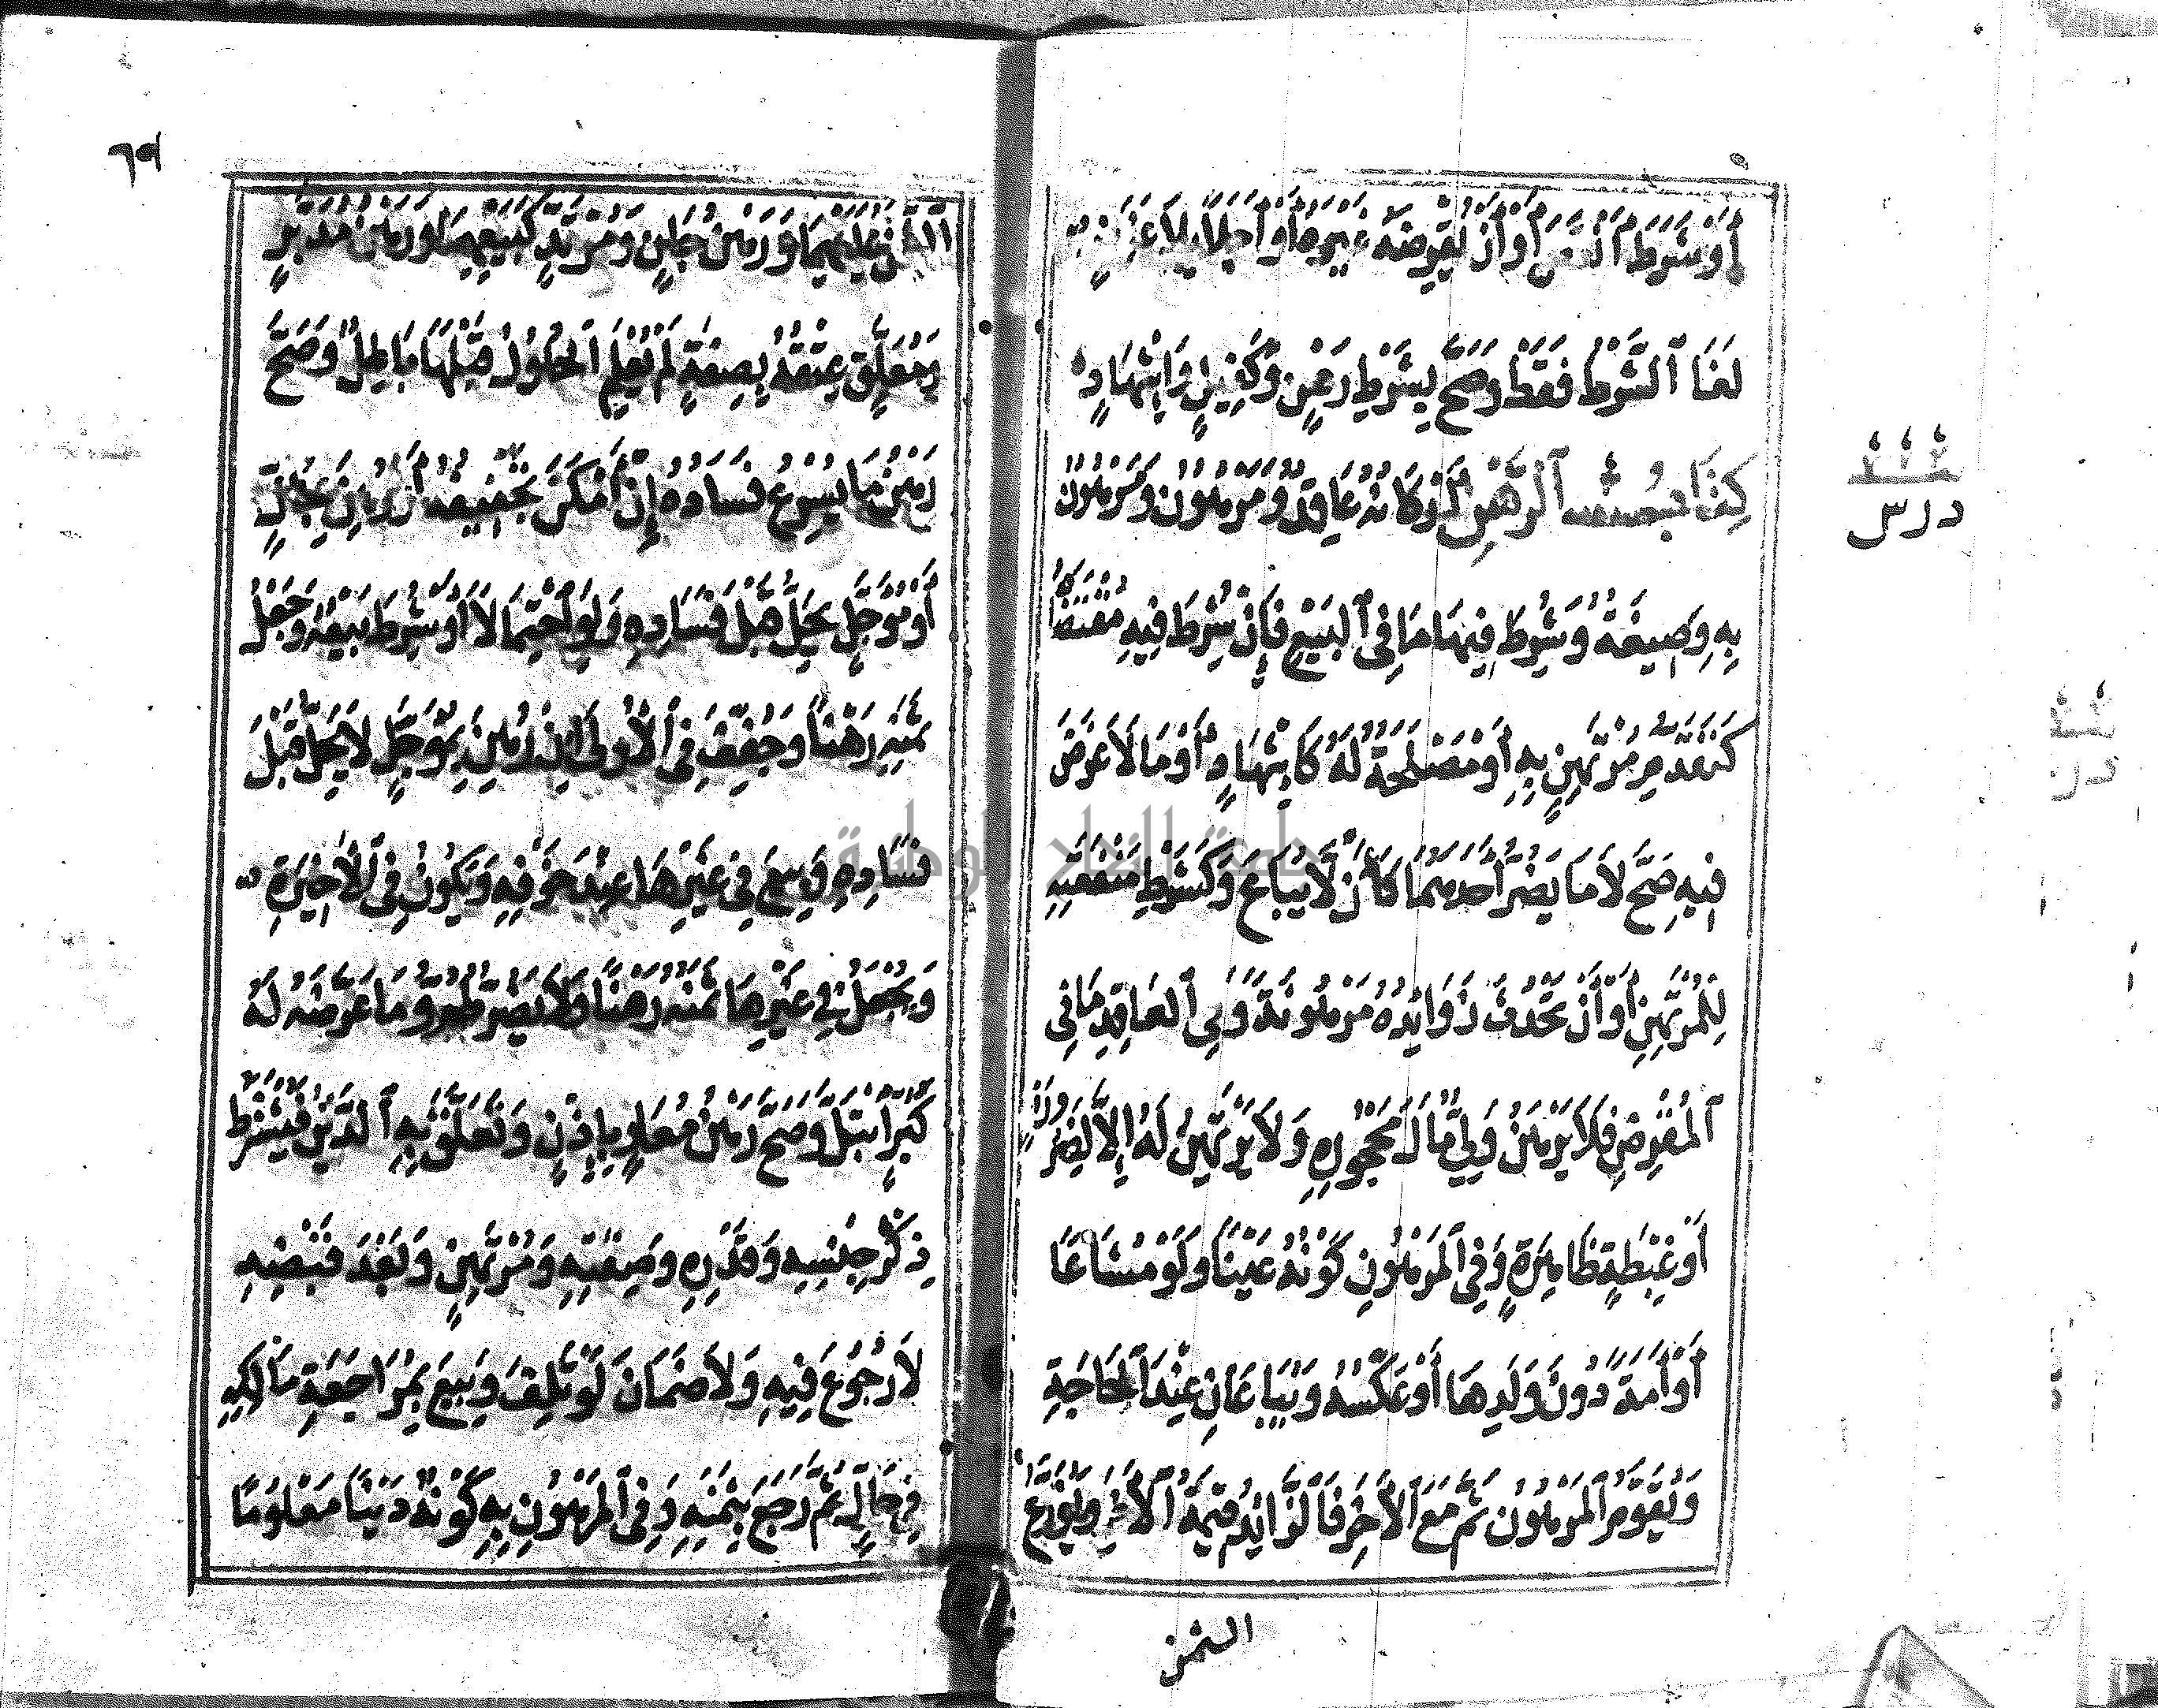 أَوْ شَرَطَ أَنْقَصَ أَوْ أَنْ يُقْرِضَهُ غَيْرَهُ أَوْ أَجَلًا بِلَا غَرَضٍ
لَغَا ٱلشَّرْطُ فَقَطْ وَصَحَّ بِشَرْطِ رَهْنٍ وَكَفِيلٍ وَإِشْهَادٍ
كِتَابُ ٱلرَّهْنِ أَرْكَانُهُ عَاقِدٌ وَمَرْهُونٌ وَمَرْهُونٌ
بِهِ وَصِيغَةٌ وَشُرِطَ فِيهَا مَا فِي ٱلْبَيْعِ فَإِنْ شُرِطَ فِيهِ مُقْتَضَاهُ
كَتَقَدُّمِ مُرْتَهِنٍ بِهِ أَوْ مَصْلَحَةٌ لَهُ كَإِشْهَادٍ أَوْ مَا لَا غَرَضَ
فِيهِ صَحَّ لَا مَا يَضُرُّ أَحَدَهُمَا كَأَنْ لَا يُبَاعَ وَكَشَرْطِ مَنْفَعَتِهِ
لِلْمُرْتَهِنِ أَوْ أَنْ تَحْدُثَ زَوَائِدُهُ مَرْهُونَةً وَفِي ٱلْعَاقِدِ مَا فِي
ٱلْمُقْرِضِ فَلَا يَرْهَنُ وَلِيٌّ مَالَ مَحْجُورِهِ وَلَا يَرْتَهِنُ لَهُ إِلَّا لِضَرُورَةٍ
أَوْ غِبْطَةٍ ظَاهِرَةٍ وَفِي ٱلْمَرْهُونِ كَوْنُهُ عَيْنًا وَلَوْ مُشَاعًا
أَوْ أَمَةً دُونَ وَلَدِهَا أَوْ عَكْسُهُ وَيُبَاعَانِ عِنْدَ ٱلْحَاجَةِ
وَيُقَوَّمُ ٱلْمَرْهُونُ ثُمَّ مَعَ ٱلْآخَرِ فَٱلزَّائِدُ قِيمَةُ ٱلْآخَرِ وَيُوَزَّعُ
الثمن
درس
٦٩
ٱلثَّمَنُ عَلَيْهِمَا وَرَهْنُ جَانٍ وَمُرْتَدٍّ كَبَيْعِهِمَا وَرَهْنُ مُدَبَّرٍ
وَمُعَلَّقٍ عِتْقُهُ بِصِفَةٍ لَمْ يُعْلَمِ ٱلْحُلُولُ قَبْلَهَا بَاطِلٌ وَصَحَّ
رَهْنُ مَا يُسْرِعُ فَسَادُهُ إِنْ أَمْكَنَ تَجْفِيفُهُ أَوْ رُهِنَ بِحَالٍّ
أَوْ مُؤَجَّلٍ يَحِلُّ قَبْلَ فَسَادِهِ وَلَوِ ٱحْتِمَالًا أَوْ شَرَطَ بَيْعَهُ وَجَعْلَ
ثَمَنِهِ رَهْنًا وَجُفِّفَ فِي ٱلْأُولَى إِنْ رُهِنَ بِمُؤَجَّلٍ لَا يَحِلُّ قَبْلَ
فَسَادِهِ وَبِيعَ فِي غَيْرِهَا عِنْدَ خَوْفِهِ وَيَكُونُ فِي ٱلْأَخِيرَةِ
وَيُجْعَلُ فِي غَيْرِهَا ثَمَنُهُ رَهْنًا وَلَا يَضُرُّ طُرُوُّ مَا عَرَّضَهُ لَهُ
كَبُرٍّ ٱبْتَلَّ وَصَحَّ رَهْنُ مُعَارٍ بِإِذْنٍ وَتَعَلَّقَ بِهِ ٱلدَّيْنُ فَيُشْتَرَطُ
ذِكْرُ جِنْسِهِ وَقَدْرِهِ وَصِفَتِهِ وَمُرْتَهِنٍ وَبَعْدَ قَبْضِهِ
لَا رُجُوعَ فِيهِ وَلَا ضَمَانَ لَوْ تَلِفَ وَبِيعَ بِمُرَاجَعَةِ مَالِكِهِ
فِي حَالٍّ ثُمَّ رَجَعَ بِثَمَنِهِ وَفِي ٱلْمَرْهُونِ بِهِ كَوْنُهُ دَيْنًا مَعْلُومًا